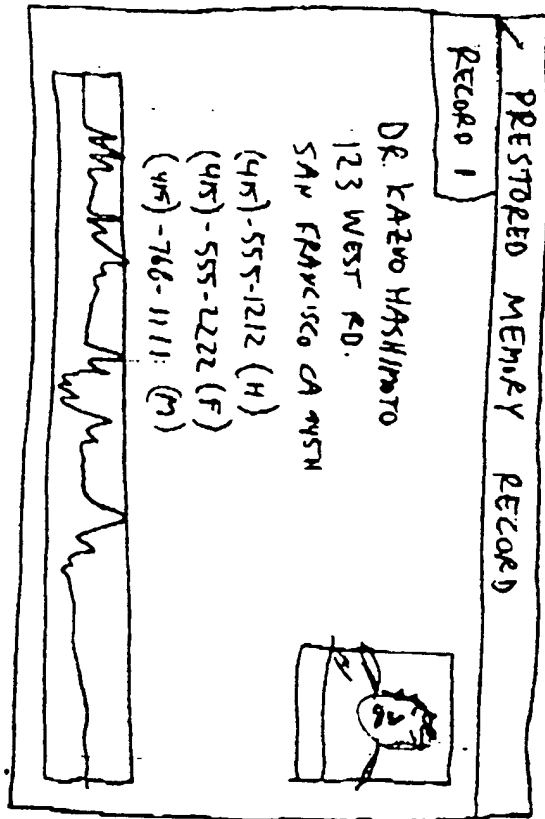 PRESTORED MEMORY RECORD
RECORD 1
DR. KAZUO HASHIMOTO
123 WEST RD.
SAN FRANCISCO CA
(415)-555-1212 (H)
(415)-555-2222 (F)
(415)-768-1111: (M)